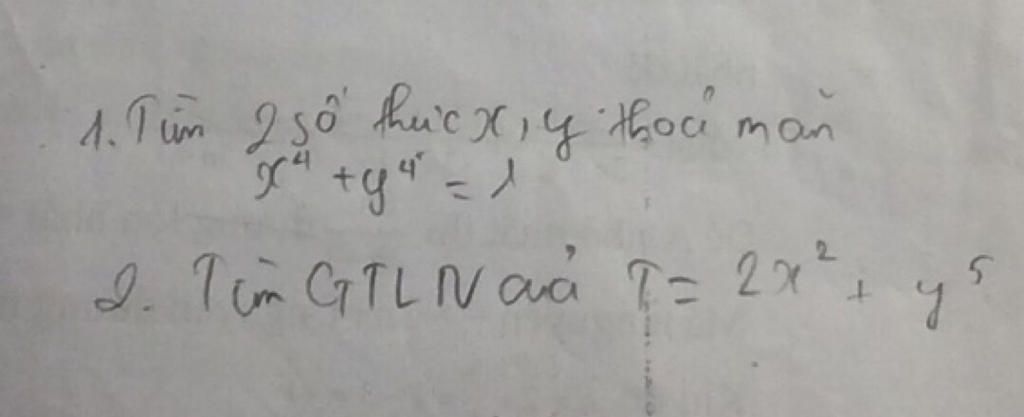 1. Tìm 2 số thực x, y thoả mãn
x⁴ + y⁴ = 1
2. Tìm GTLN của T = 2x² + y⁵